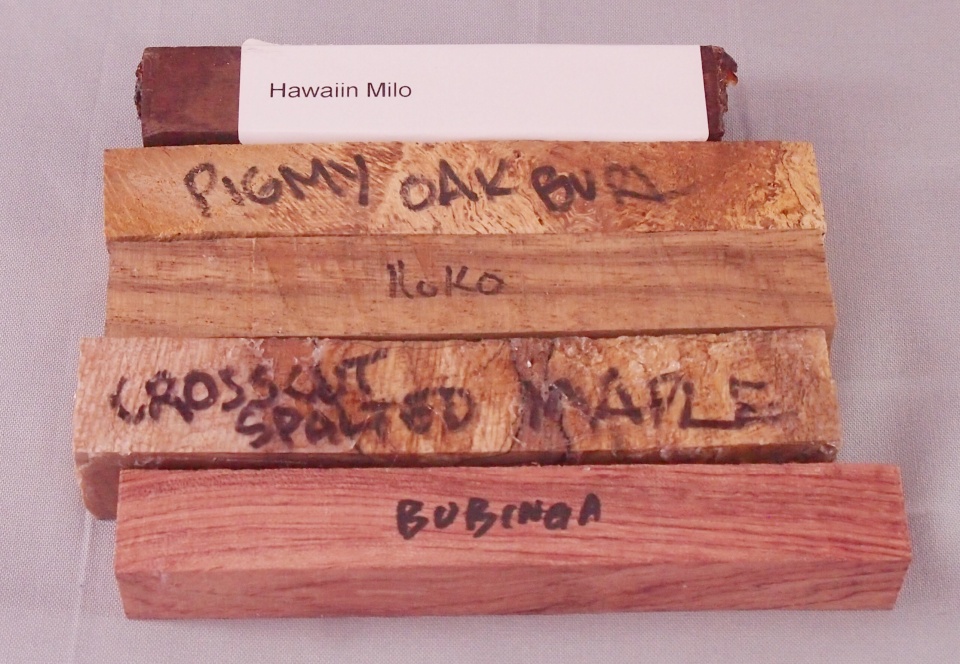 Hawaiin Milo
PIGMY OAK BURL
KoKo
CROSSCUT
SPALTED MAPLE
BUBINGA